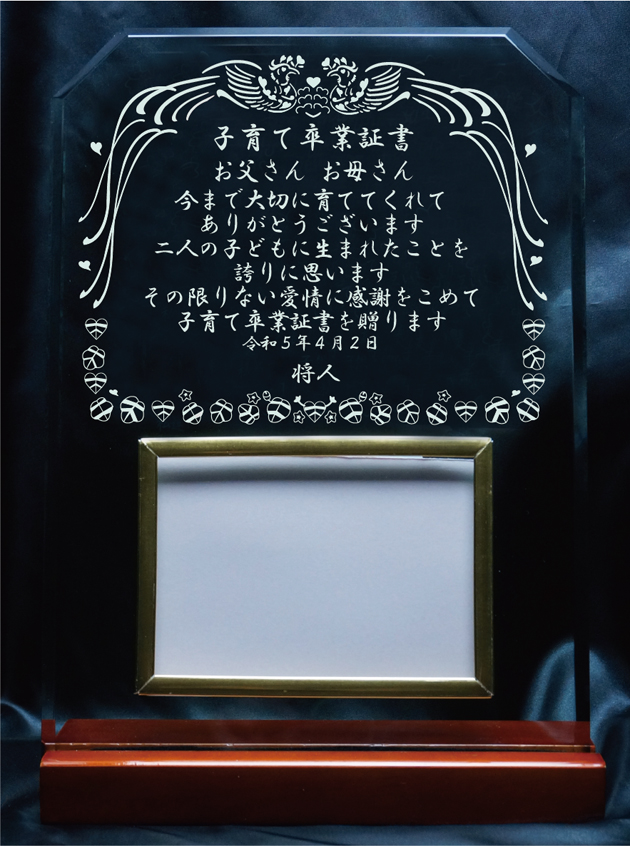 子育て卒業証書
お父さん お母さん
今まで大切に育ててくれて
ありがとうございます
二人の子どもに生まれたことを
誇りに思います
その限りない愛情に感謝をこめて
子育て卒業証書を贈ります
令和5年4月2日
将人